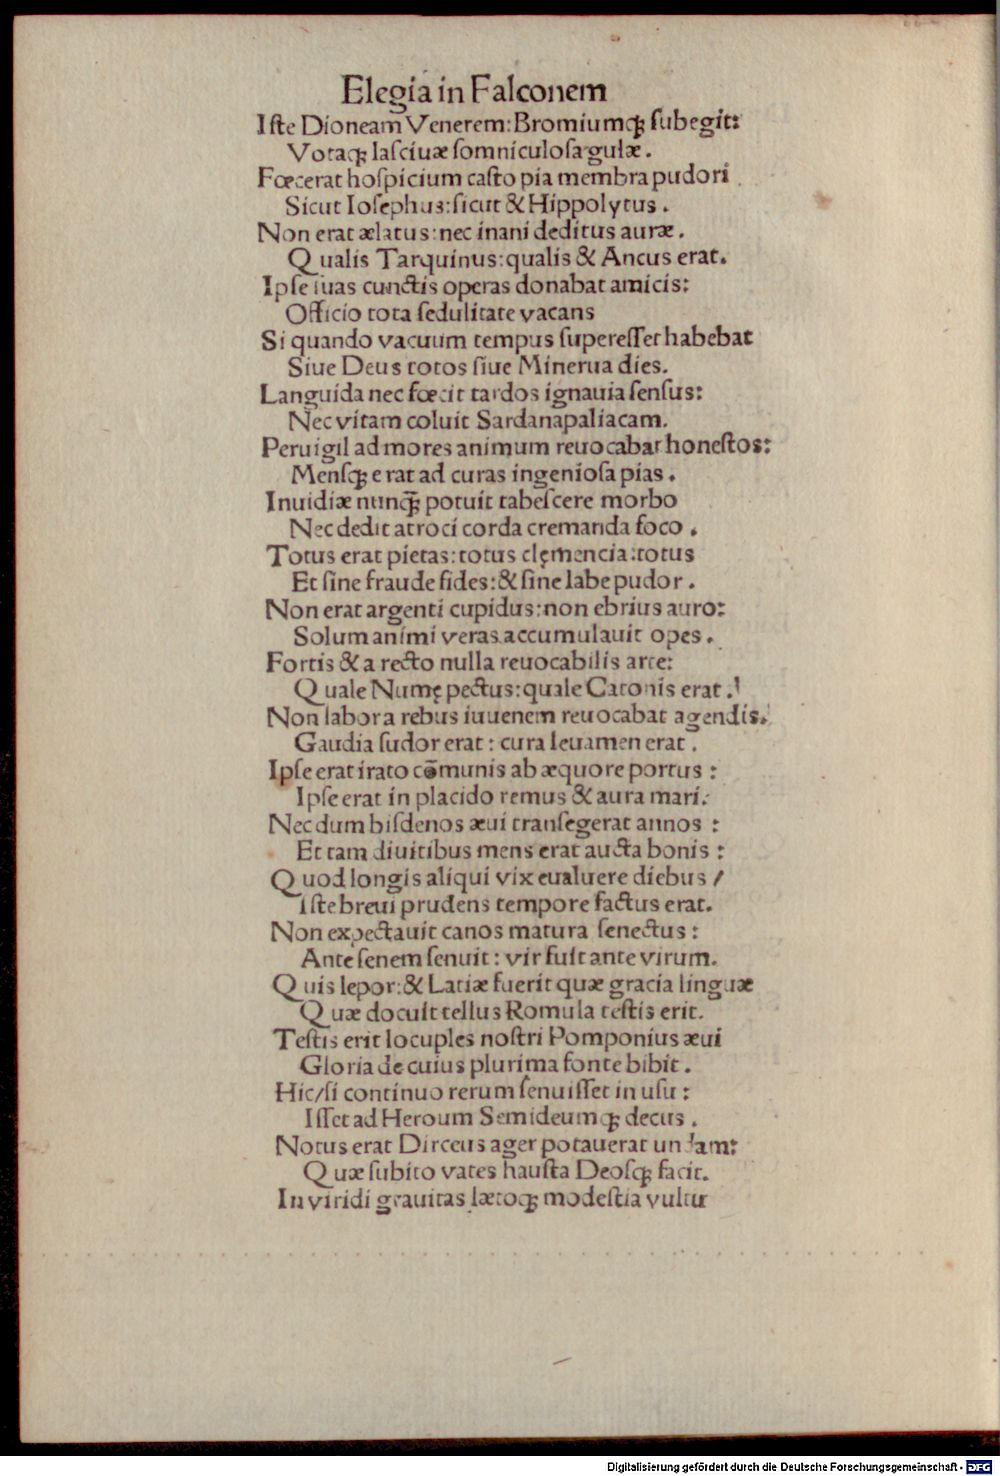 Elegia in Falconem
Iste Dioneam Venerem: Bromiumqꝫ subegit:
Votaqꝫ lasciuæ somniculosa gulæ.
Fœcerat hospicium casto pia membra pudori
Sicut Iosephus: sicut & Hippolytus.
Non erat ælatus: nec inani deditus auræ.
Qualis Tarquinus: qualis & Ancus erat.
Ipse suas cunctis operas donabat amicis:
Officio tota sedulitate vacans
Si quando vacuum tempus superesset habebat
Siue Deus totos siue Minerua dies.
Languida nec fœcit tardos ignauia sensus:
Nec vitam coluit Sardanapaliacam.
Peruigil ad mores animum reuocabat honestos:
Mensqꝫ erat ad curas ingeniosa pias.
Inuidiæ nunqꝫ̄ potuit tabescere morbo
Nec dedit atroci corda cremanda foco.
Totus erat pietas: totus clęmencia: totus
Et sine fraude fides: & sine labe pudor.
Non erat argenti cupidus: non ebrius auro:
Solum animi veras accumulauit opes.
Fortis & a recto nulla reuocabilis arte:
Quale Numę pectus: quale Catonis erat.
Non labor a rebus iuuenem reuocabat agendis.
Gaudia sudor erat: cura leuamen erat.
Ipse erat irato cōmunis ab æquore portus:
Ipse erat in placido remus & aura mari.
Nec dum bisdenos æui transegerat annos:
Et tam diuitibus mens erat aucta bonis:
Quod longis aliqui vix eualuere diebus /
Iste breui prudens tempore factus erat.
Non expectauit canos matura senectus:
Ante senem senuit: vir fuit ante virum.
Quis lepor: & Latiæ fuerit quæ gracia linguæ
Quæ docuit tellus Romula testis erit.
Testis erit locuples nostri Pomponius æui
Gloria de cuius plurima fonte bibit.
Hic/si continuo rerum senuisset in usu:
Isset ad Heroum Semideumqꝫ decus.
Notus erat Dirceus ager potauerat undam:
Quæ subito vates hausta Deosqꝫ facit.
In viridi grauitas lætoqꝫ modestia vultu
Digitalisierung gefördert durch die Deutsche Forschungsgemeinschaft - DFG